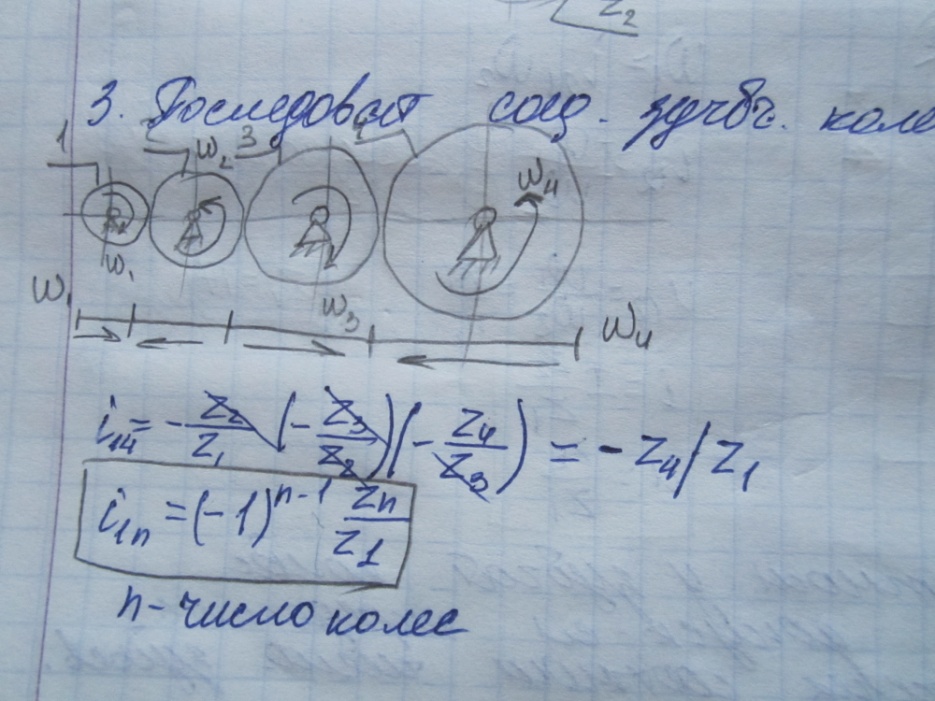 Z₂
3. Последоват соед. зубч. коле
1 2 ω₂ 3 4 ω₄
ω₁
ω₁ ω₃ ω₄
i₁₄ = - Z₂/Z₁ (- Z₃/Z₂)(- Z₄/Z₃) = - Z₄/Z₁
i₁ₙ = (-1)ⁿ⁻¹ Zₙ/Z₁
n - число колес